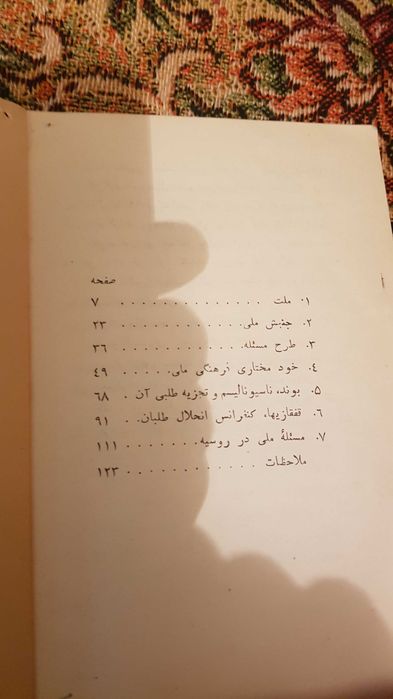 صفحه
۱. ملت . . . . . . . . . . . . . ۷
۲. جنبش ملی. . . . . . . . . . . . ۲۳
۳. طرح مسئله. . . . . . . . . . . . ۳۶
۴. خود مختاری فرهنگی ملی. . . . . . ۴۹
۵. بوند، ناسیونالیسم و تجزیه طلبی آن . ۶۸
۶. قفقازیها، کنفرانس انحلال طلبان. . ۹۱
۷. مسئلهٔ ملی در روسیه. . . . . . . . ۱۱۱
ملاحظات . . . . . . . . . . . . ۱۲۳